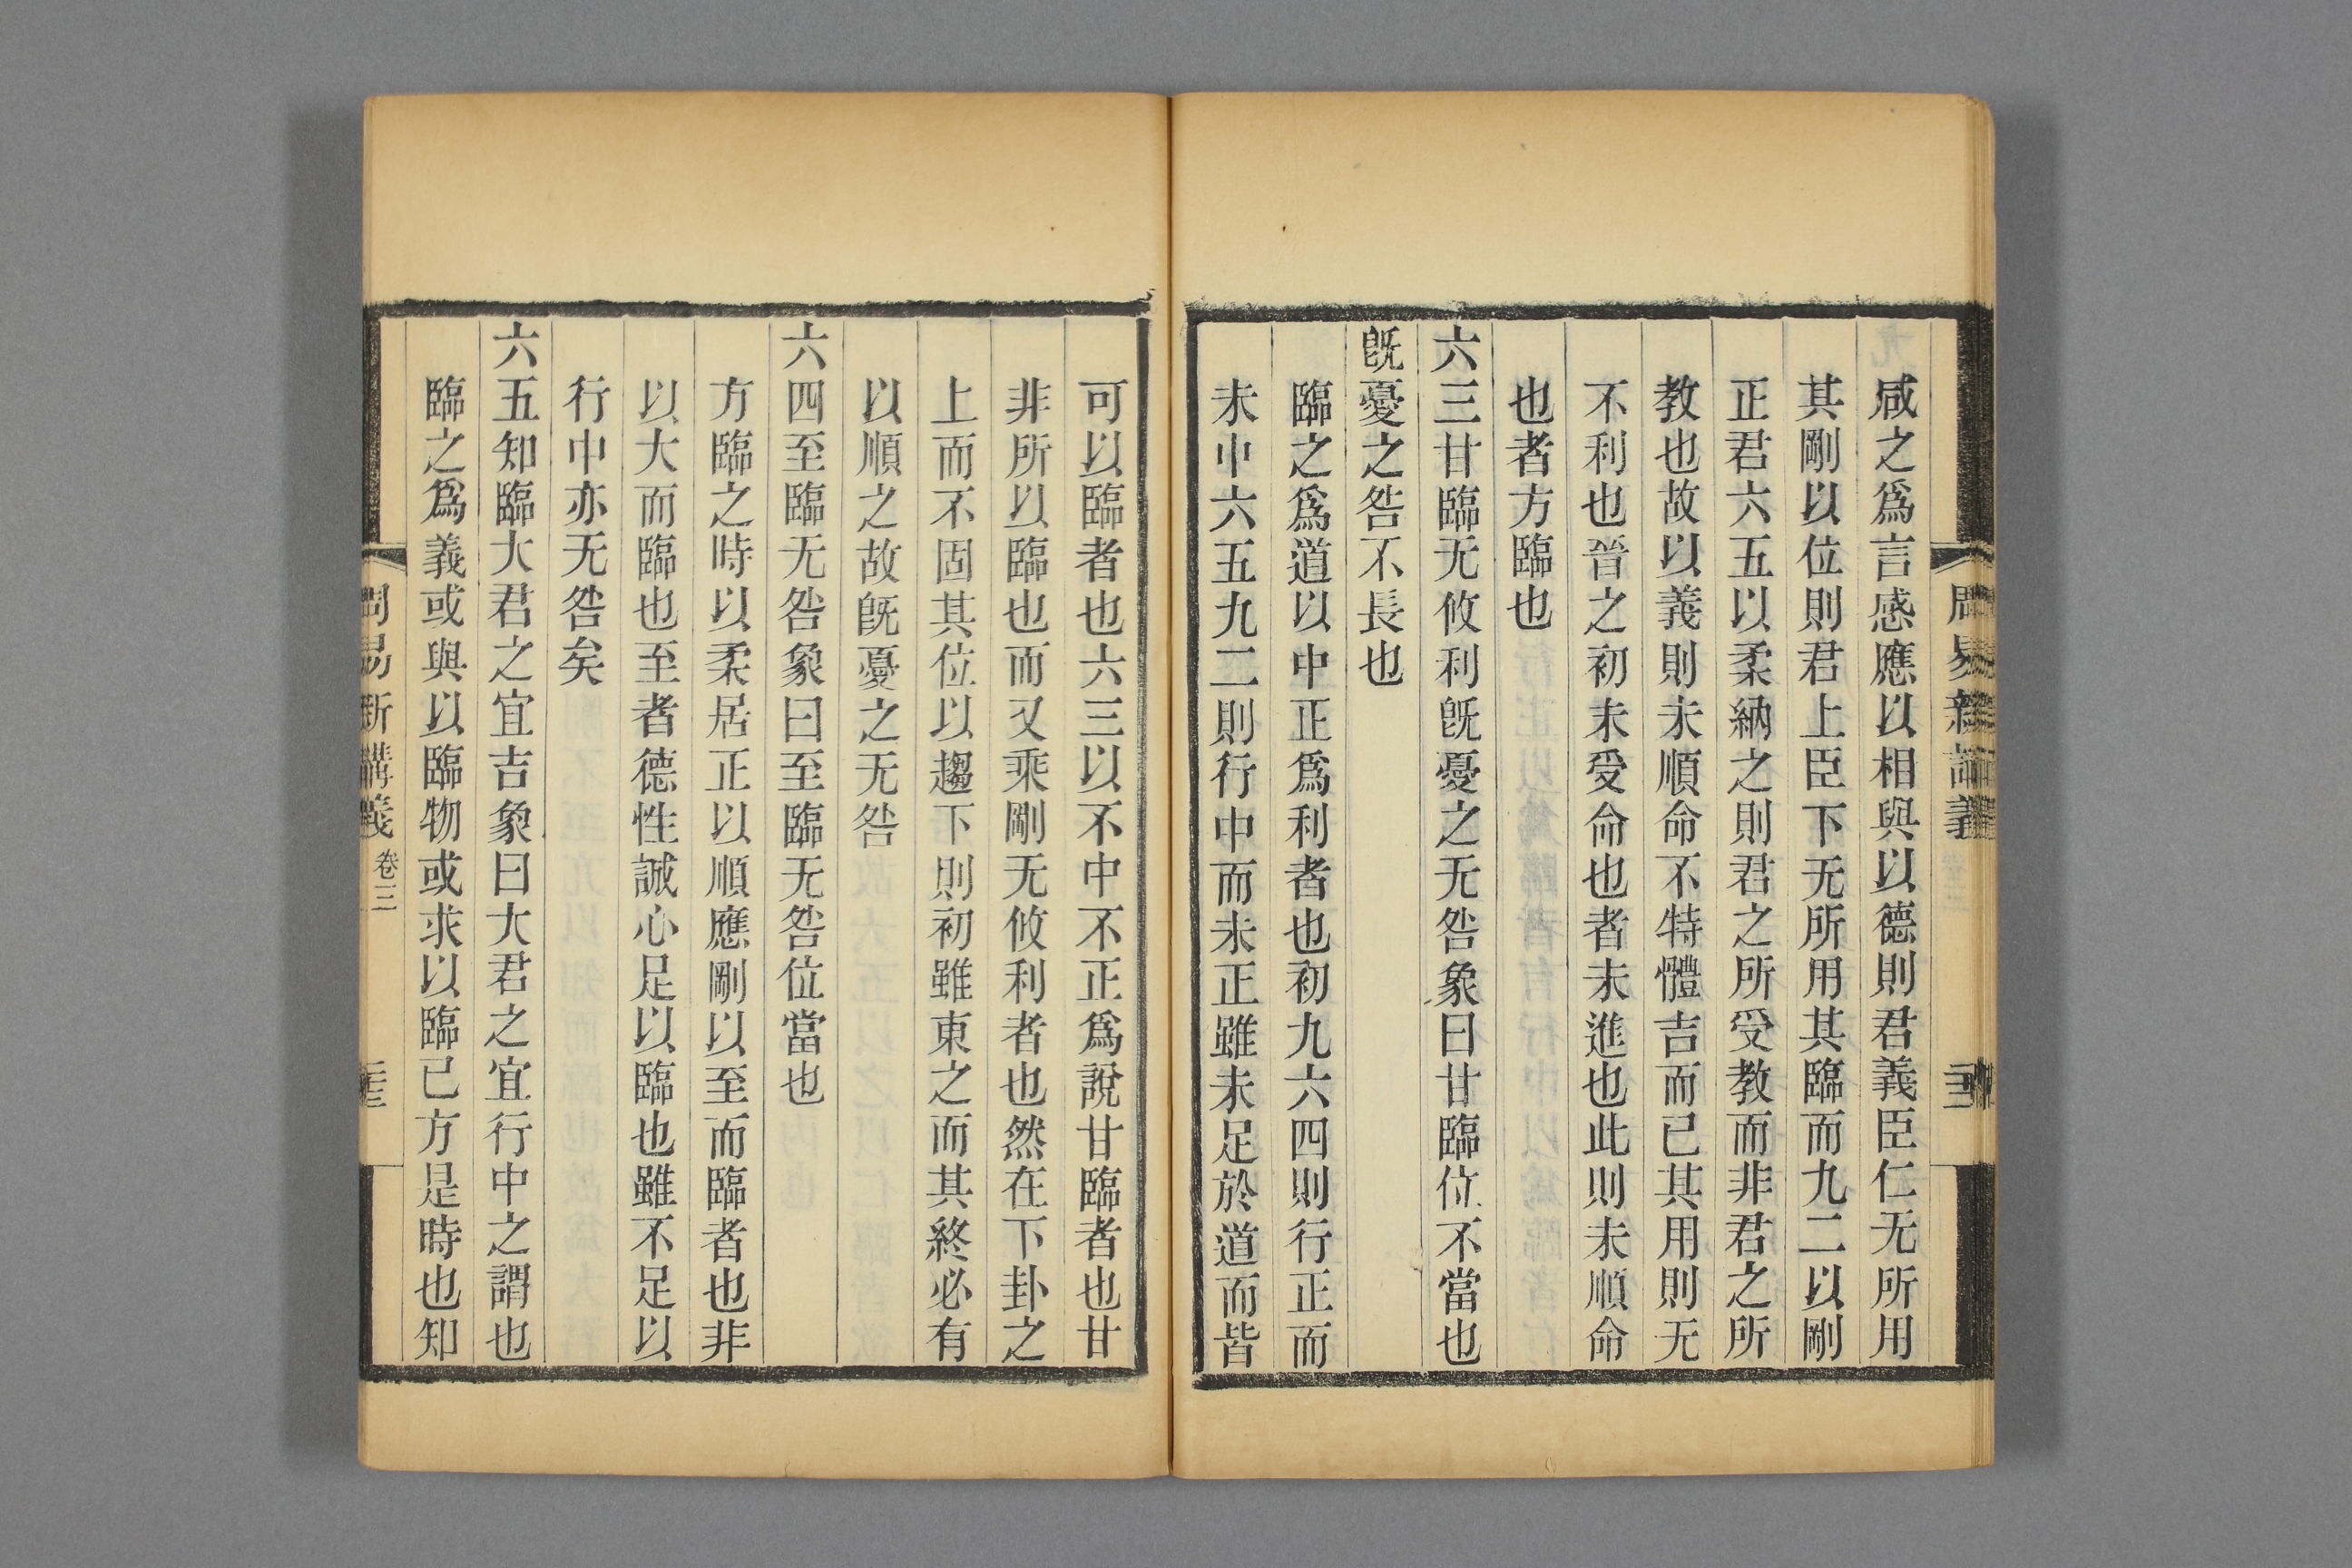 周易新講義
咸之爲言感應以相與以德則君義臣仁无所用
其剛以位則君上臣下无所用其臨而九二以剛
正君六五以柔納之則君之所受教而非君之所
教也故以義則未順命不特體吉而已其用則无
不利也晉之初未受命也者未進也此則未順命
也者方臨也
六三甘臨无攸利旣憂之无咎象曰甘臨位不當也
旣憂之咎不長也
臨之爲道以中正爲利者也初九六四則行正而
未中六五九二則行中而未正雖未足於道而皆
可以臨者也六三以不中不正爲說甘臨者也甘
非所以臨也而又乘剛无攸利者也然在下卦之
上而不固其位以趨下則初雖東之而其終必有
以順之故旣憂之无咎
六四至臨无咎象曰至臨无咎位當也
方臨之時以柔居正以順應剛以至而臨者也非
以大而臨也至者德性誠心足以臨也雖不足以
行中亦无咎矣
六五知臨大君之宜吉象曰大君之宜行中之謂也
臨之爲義或與以臨物或求以臨已方是時也知
周易新講義 卷三